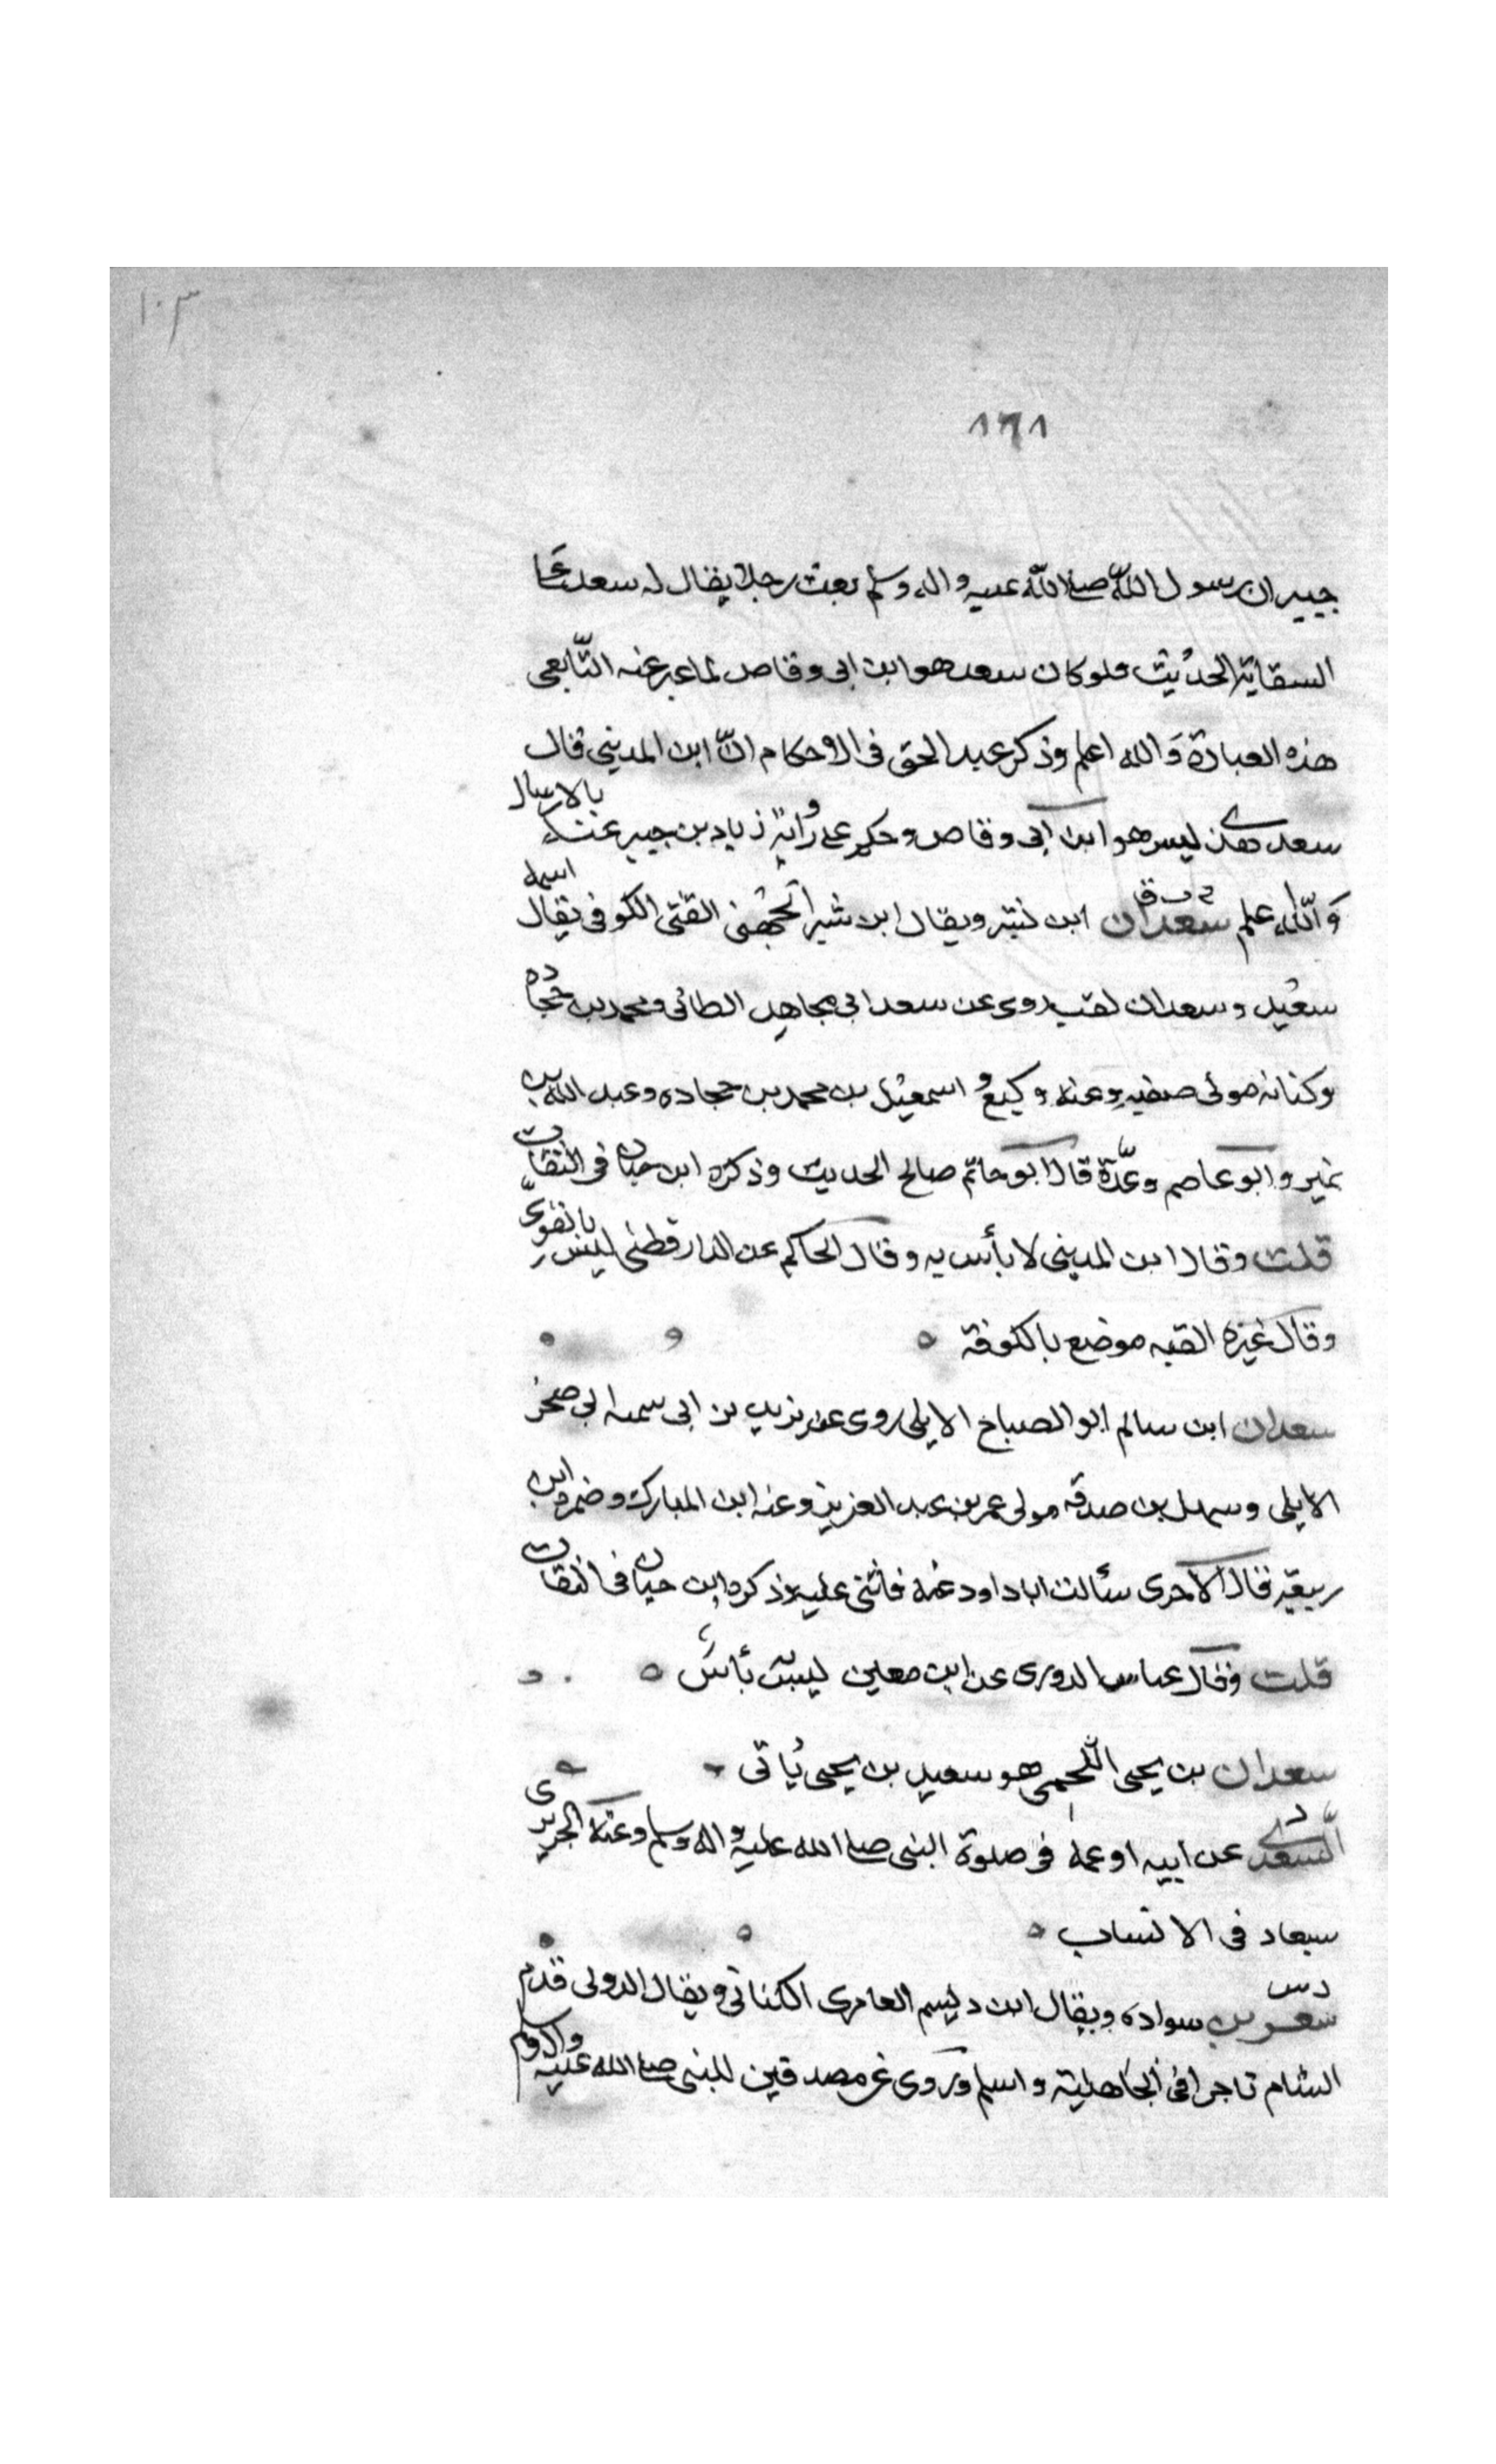 ١٠٣
٨٦٨
جبير ان رسول الله صلى الله عليه واله وسلم بعث رجلا يقال له سعد على
السقاية الحديث فلو كان سعد هو ابن ابى وقاص لما عبر عنه التابعى
هذه العبارة والله اعلم وذكر عبد الحق فى الاحكام ان ابن المدينى قال
سعد هذا ليس هو ابن ابى وقاص وحكم على رواية زياد بن جبير عنه بالارسال
والله اعلم سعدان ابن ويقال ابن بشير الجهنى القبى الكوفى يقال اسمه
سعيد وسعدان لقب روى عن سعد ابى مجاهد الطائى ومحمد بن حجاده
وكنانه مولى صفيه وعنه وكيع و اسمعيل بن محمد بن حجاده وعبد الله بن
نمير وابو عاصم وعدة قال ابو حاتم صالح الحديث وذكره ابن حبان فى الثقات
قلت وقال ابن المدينى لا بأس به وقال الحاكم عن الدارقطنى ليس بالقوى
وقال غيره القبه موضع بالكوفة
سعدان ابن سالم ابو الصباح الايلى روى عن يزيد بن ابى سميه ابى صخر
الايلى وسهل بن صدقه مولى عمر بن عبد العزيز وعنه ابن المبارك وضمره ابن
ربيعة قال الآجرى سألت ابا داود عنه فاثنى عليه وذكره ابن حبان فى الثقات
قلت وقال عباس الدورى عن ابن معين ليس به بأس
سعدان بن يحيى اللخمى هو سعيد بن يحيى ياتى
السعدى عن ابيه او عمه فى صلوة النبى صلى الله عليه واله وسلم وعنه الجريرى
سيعاد فى الانساب
د س
سعر بن سواده ويقال ابن ديسم العامرى الكنانى ويقال الدولى قدم
الشام تاجرا فى الجاهلية واسلم وروى عن مصدقين للنبى صلى الله عليه واله وسلم